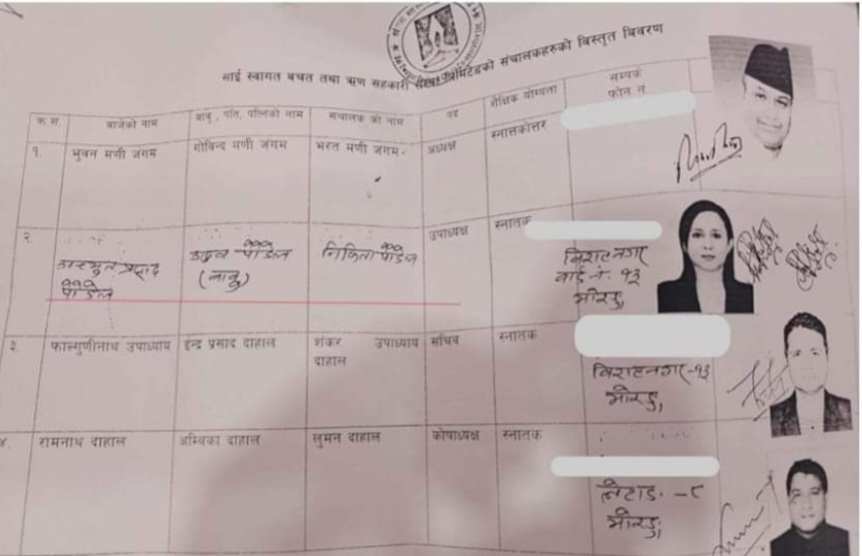 साई स्वागत बचत तथा ऋण सहकारी संस्था लिमिटेडको संचालकहरुको विस्तृत विवरण
क.स. बाजेको नाम बाबु, पति, पत्निको नाम संचालक को नाम पद शैक्षिक योग्यता सम्पर्क फोन नं
१. भुवन मणी जंगम गोविन्द मणी जंगम भरत मणी जंगम अध्यक्ष स्नातकोत्तर
२. प्रसाद पौडेल उद्धव पौडेल (बाबु) निकिता पौडेल उपाध्यक्ष स्नातक
विराटनगर
वार्ड नं. १३
मोरङ
३. फाल्गुणीनाथ उपाध्याय ईन्द्र प्रसाद दाहाल शंकर उपाध्याय दाहाल सचिव स्नातक
विराटनगर-१३
मोरङ
४. रामनाथ दाहाल अम्बिका दाहाल सुमन दाहाल कोषाध्यक्ष स्नातक
लेटाङ - ८
मोरङ